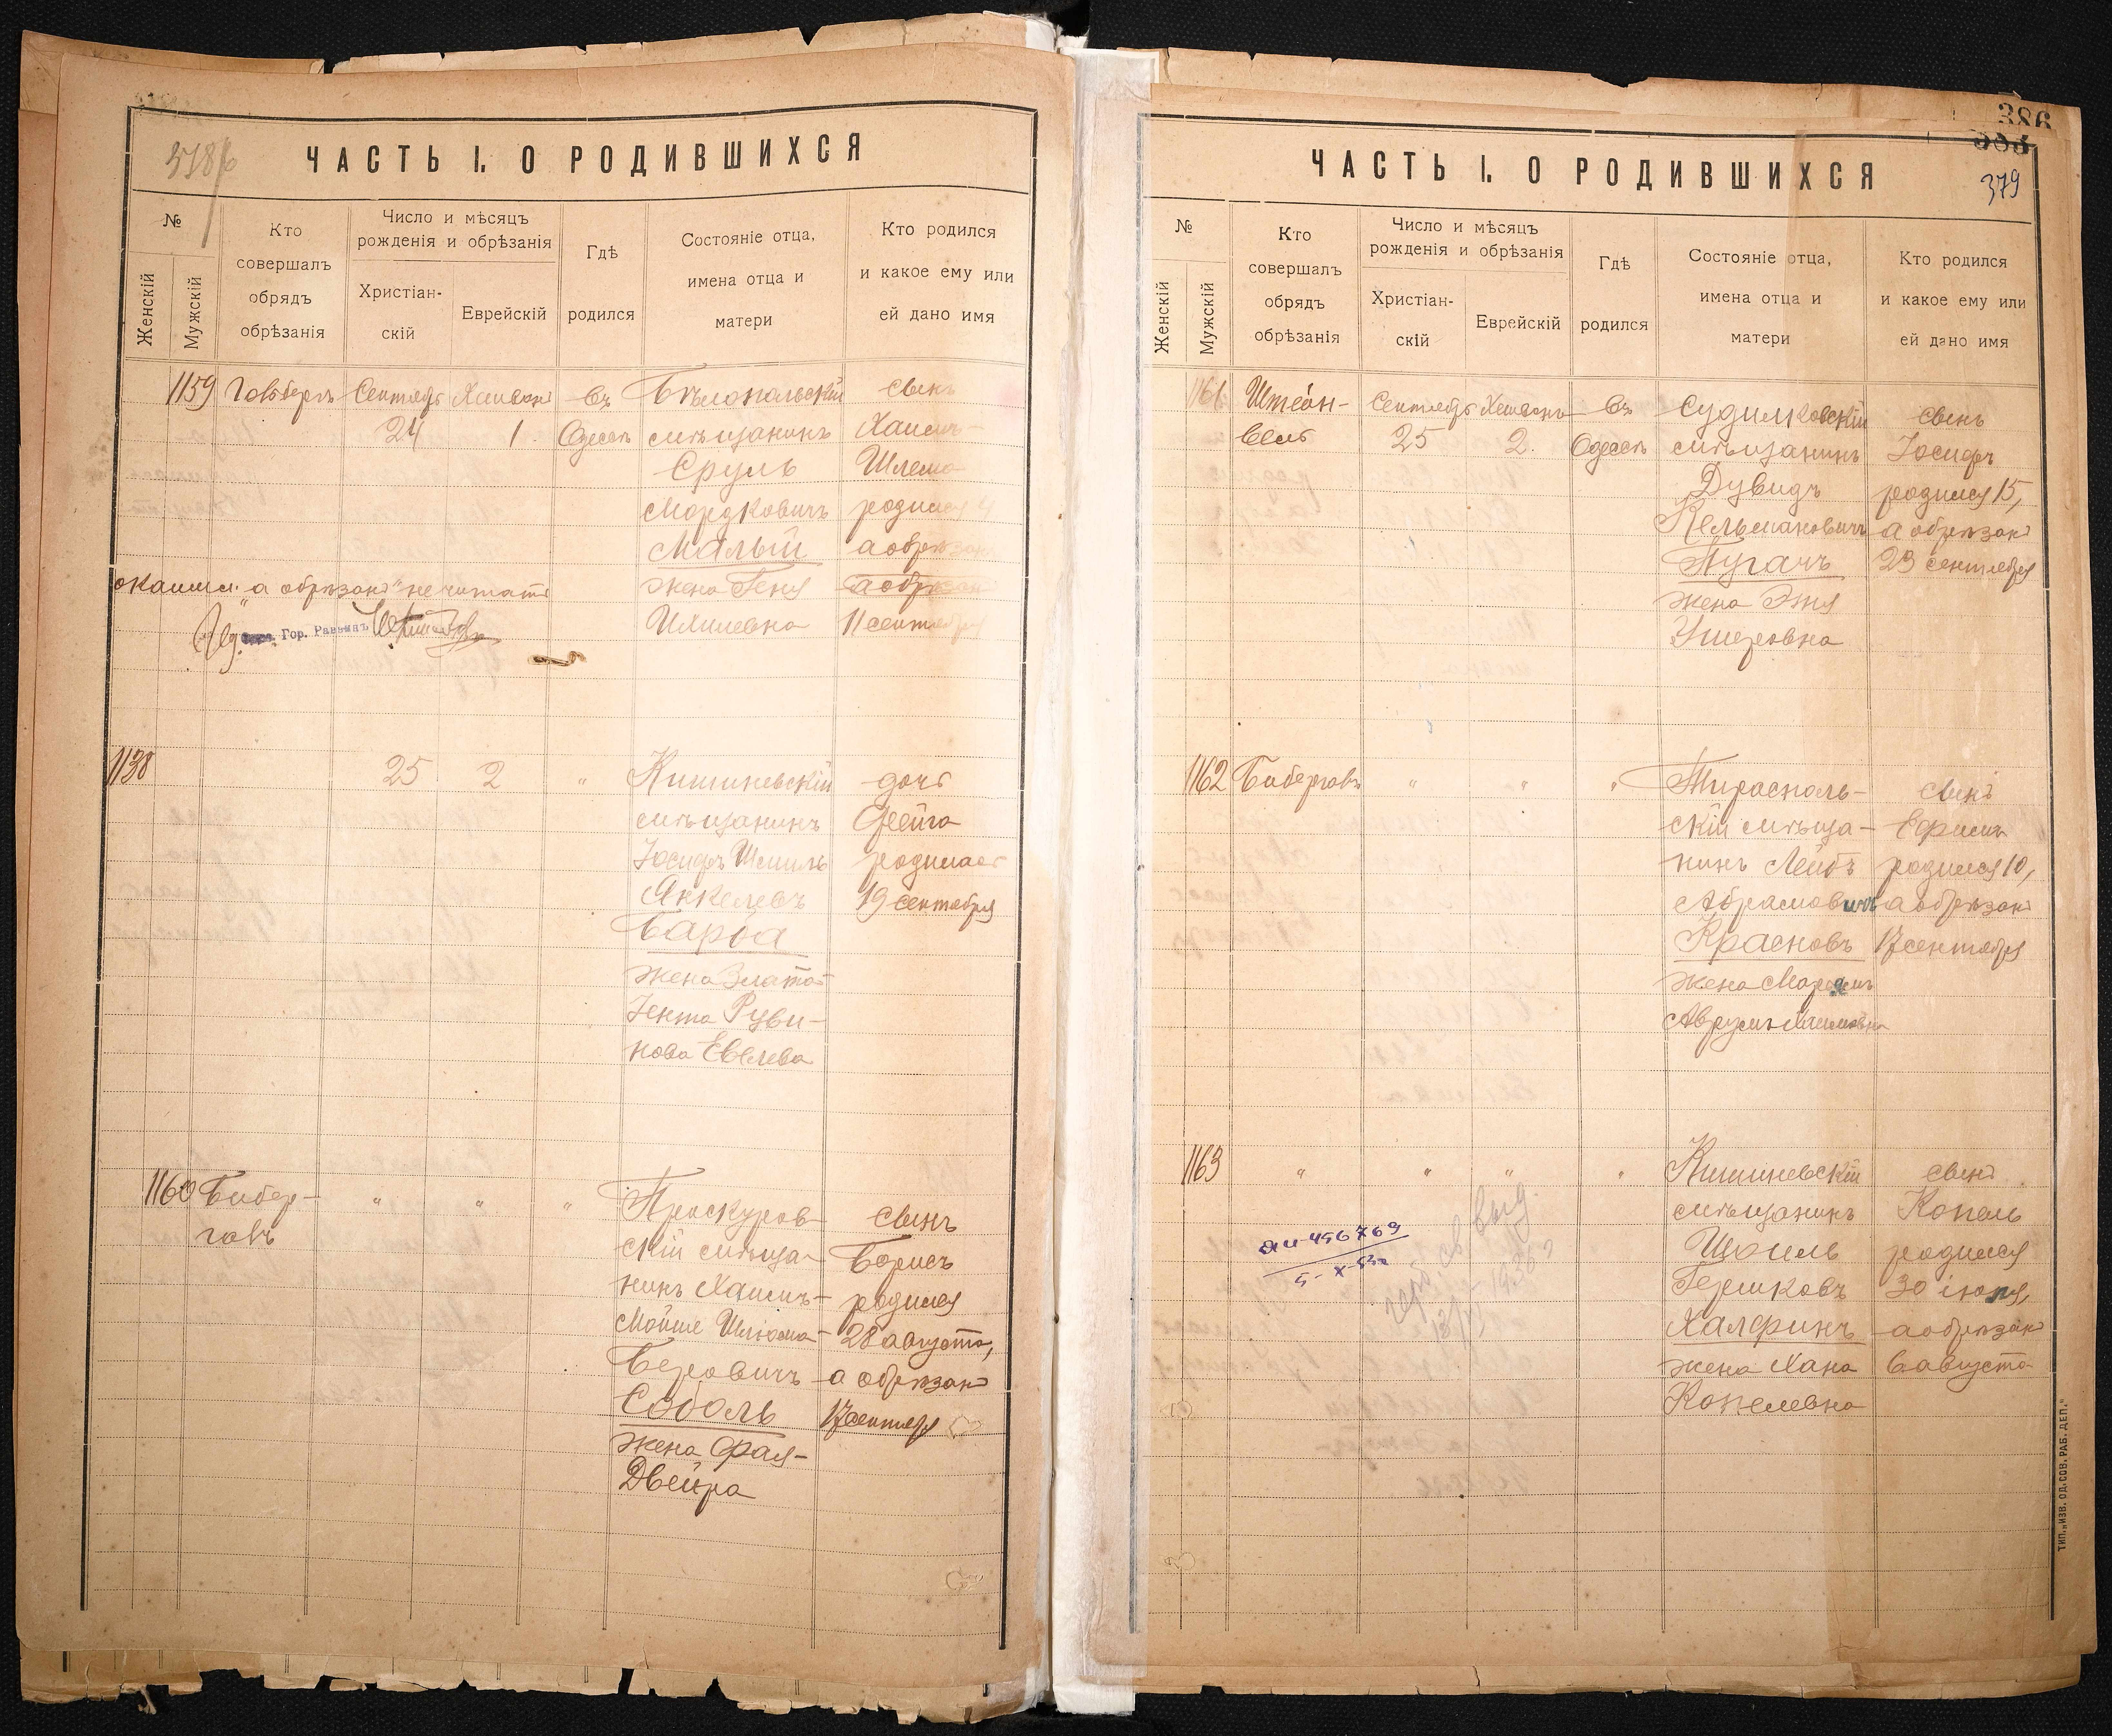 ЧАСТЬ I. О РОДИВШИХСЯ
№
Женскій
Мужскій
Кто
совершалъ
обрядъ
обрѣзанія
Число и мѣсяцъ
рожденія и обрѣзанія
Христіан-
скій
Еврейскій
Гдѣ
родился
Состояніе отца,
имена отца и
матери
Кто родился
и какое ему или
ей дано имя
1159
Сентябр
24
1
Въ
Одессѣ
Бѣлопольскій
мѣщанинъ
Сруль
Мордковичъ
Малый
жена Геня
Ихилевна
сынъ
Хаимъ-
Шлема
родился 4
а обрѣзанъ
а обрѣзан
11 сентября
а обрѣзанъ" не читать
Гор. Раввинъ
1138
25
2
"
Кишиневскій
мѣщанинъ
Іосифъ Шмиль
Янкелевъ
Барба
жена Злата
Рува-
нова Евелева
дочь
Фейга
родилась
19 сентября
1160
Бибер-
галь
"
"
"
Проскуров-
скій мѣща-
нинъ Хаимъ-
Мойше Шлема
Беровичъ
Соболь
жена Фрая-
Двейра
сынъ
Борисъ
родился
28 августа,
а обрѣзанъ
17 сентября
386
385
ЧАСТЬ I. О РОДИВШИХСЯ
379
№
Женскій
Мужскій
Кто
совершалъ
обрядъ
обрѣзанія
Число и мѣсяцъ
рожденія и обрѣзанія
Христіан-
скій
Еврейскій
Гдѣ
родился
Состояніе отца,
имена отца и
матери
Кто родился
и какое ему или
ей дано имя
1161
Сентябрь
25
2.
Въ
Одессѣ
Судилковскій
мѣщанинъ
Дувидъ
Кельмановичъ
Пугачъ
жена Этя
Ушеровна
сынъ
Іосифъ
родился 15,
а обрѣзанъ
23 сентября
1162
"
"
"
Тирасполь-
скій мѣща-
нинъ Лейбъ
Абрамович
Красновъ
жена
сынъ
Ефимъ
родился 10,
а обрѣзанъ
17 сентября
1163
"
"
"
"
Кишиневскій
мѣщанинъ
Шмиль
Гершковъ
Халфинъ
жена Хана
Копелевна
сынъ
Копель
родился
30 іюля,
а обрѣзанъ
6 августа
456769
выд.
ТИП. „ИЗВ. ОД. СОВ. РАБ. ДЕП."